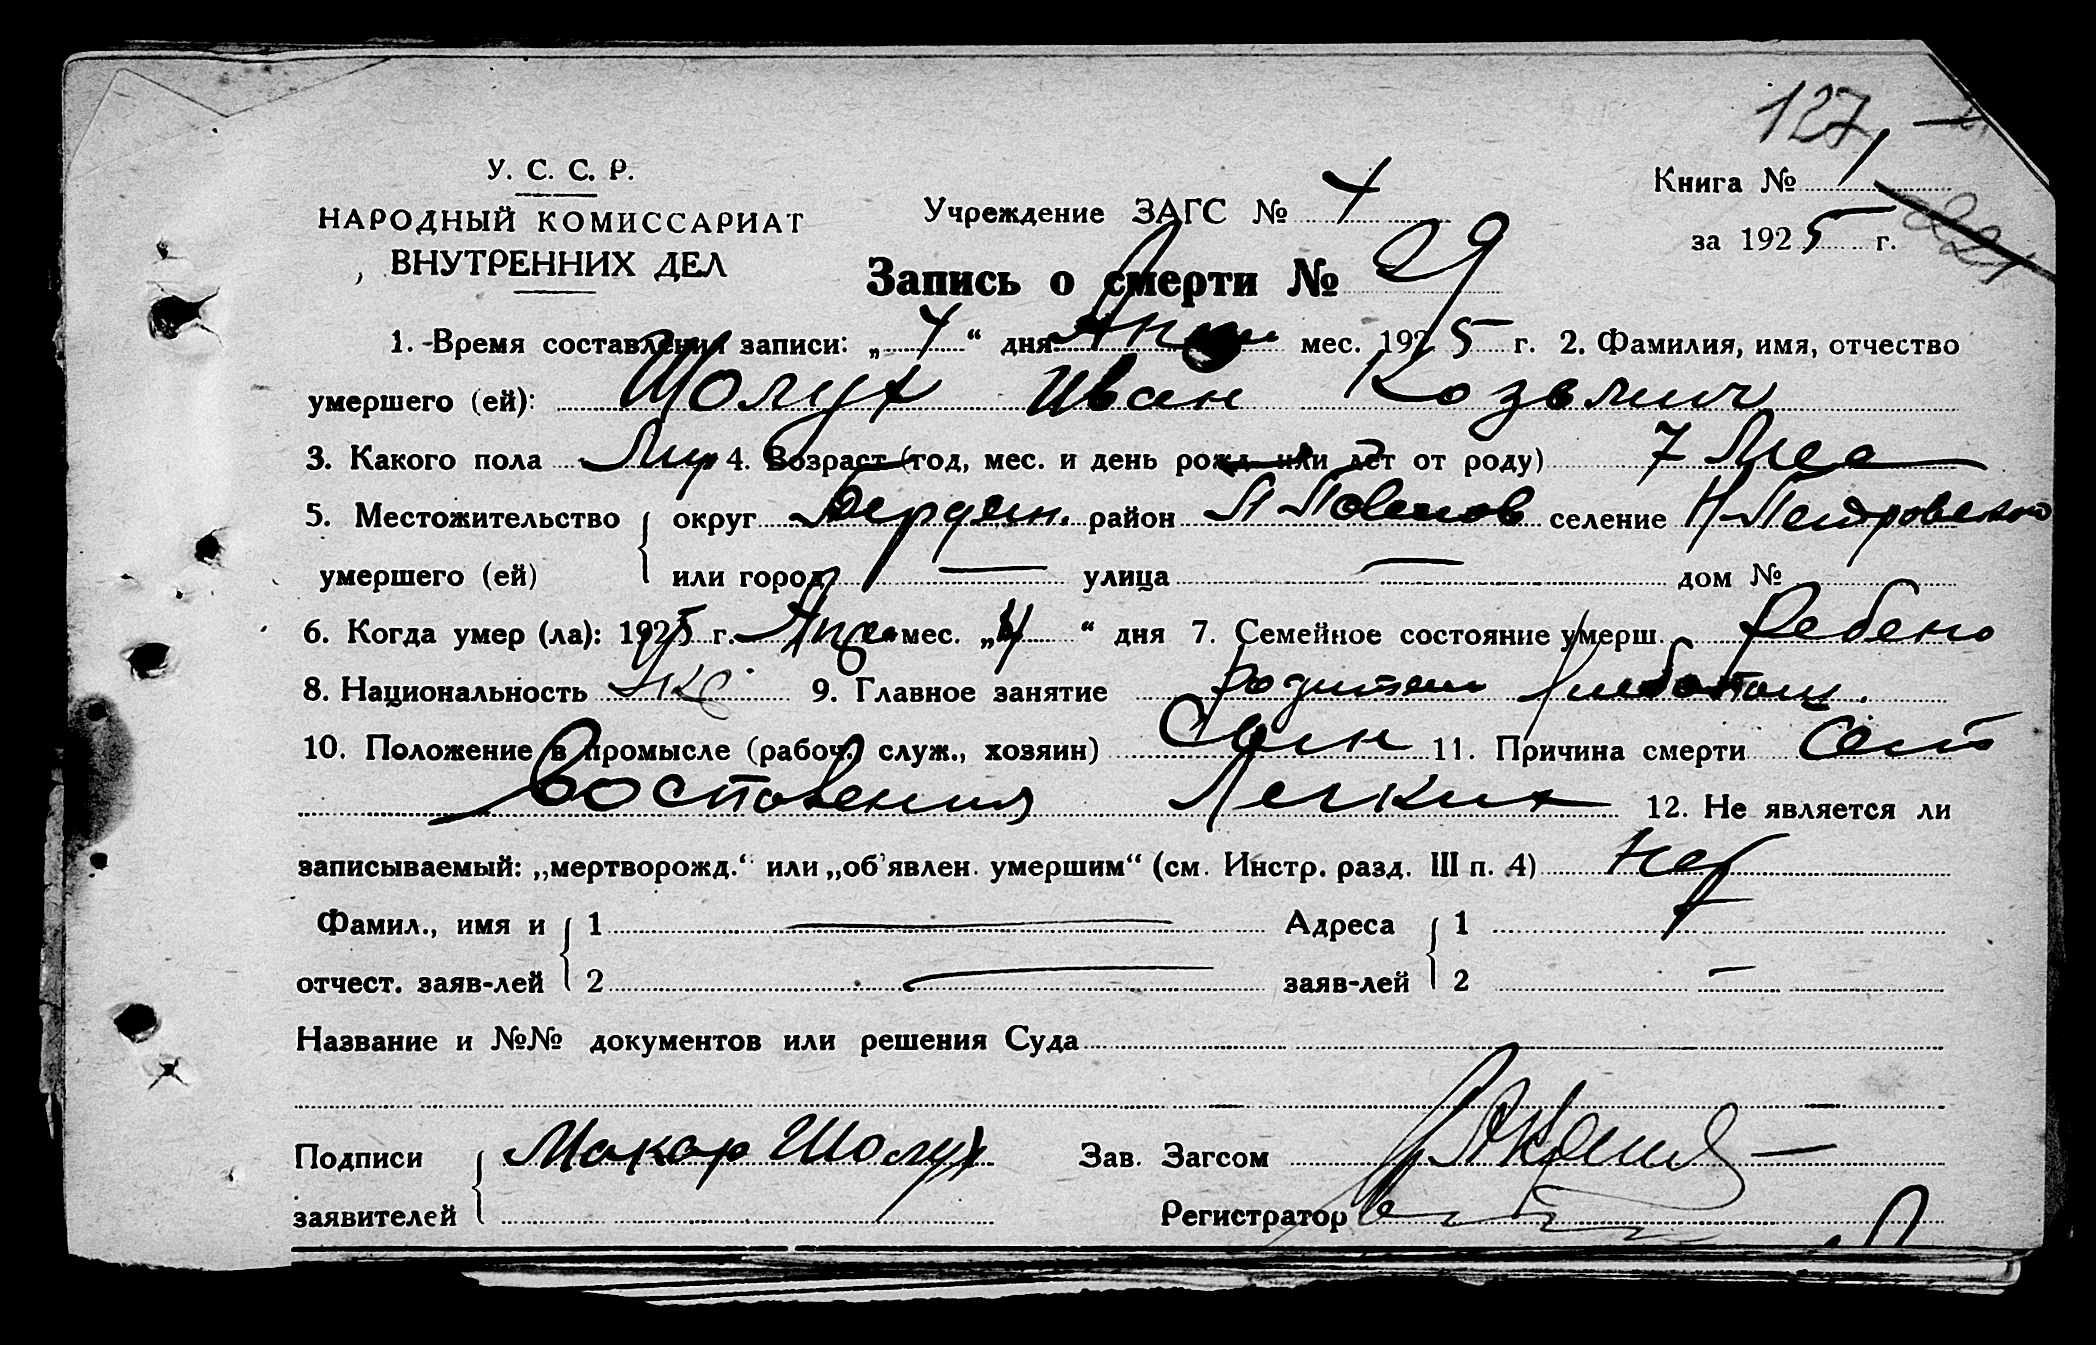 127
У. С. С. Р.
НАРОДНЫЙ КОМИССАРИАТ
ВНУТРЕННИХ ДЕЛ
Учреждение ЗАГС № 4
Книга № 1
за 1925 г.
Запись о смерти № 29
1. Время составления записи: „4“ дня мес. 1925 г. 2. Фамилия, имя, отчество
умершего (ей): Шолух Иван Козьмич
3. Какого пола Муж 4. Возраст (год, мес. и день рожд. или лет от роду) 7 Мес
5. Местожительство округ Бердян. район селение Н-Петровского
умершего (ей) или город — улица — дом №
6. Когда умер (ла): 1925 г. мес. „4“ дня 7. Семейное состояние умерш. Ребено
8. Национальность Укр 9. Главное занятие родители хлебопаш.
10. Положение в промысле (рабоч., служ., хозяин) Сын 11. Причина смерти От
Восполения Легких 12. Не является ли
записываемый: „мертворожд.“ или „об'явлен. умершим“ (см. Инстр. разд. III п. 4) Нет
Фамил., имя и 1 — Адреса 1
отчест. заяв-лей 2 — заяв-лей 2 —
Название и №№ документов или решения Суда
Подписи Макар Шолух Зав. Загсом
заявителей Регистратор